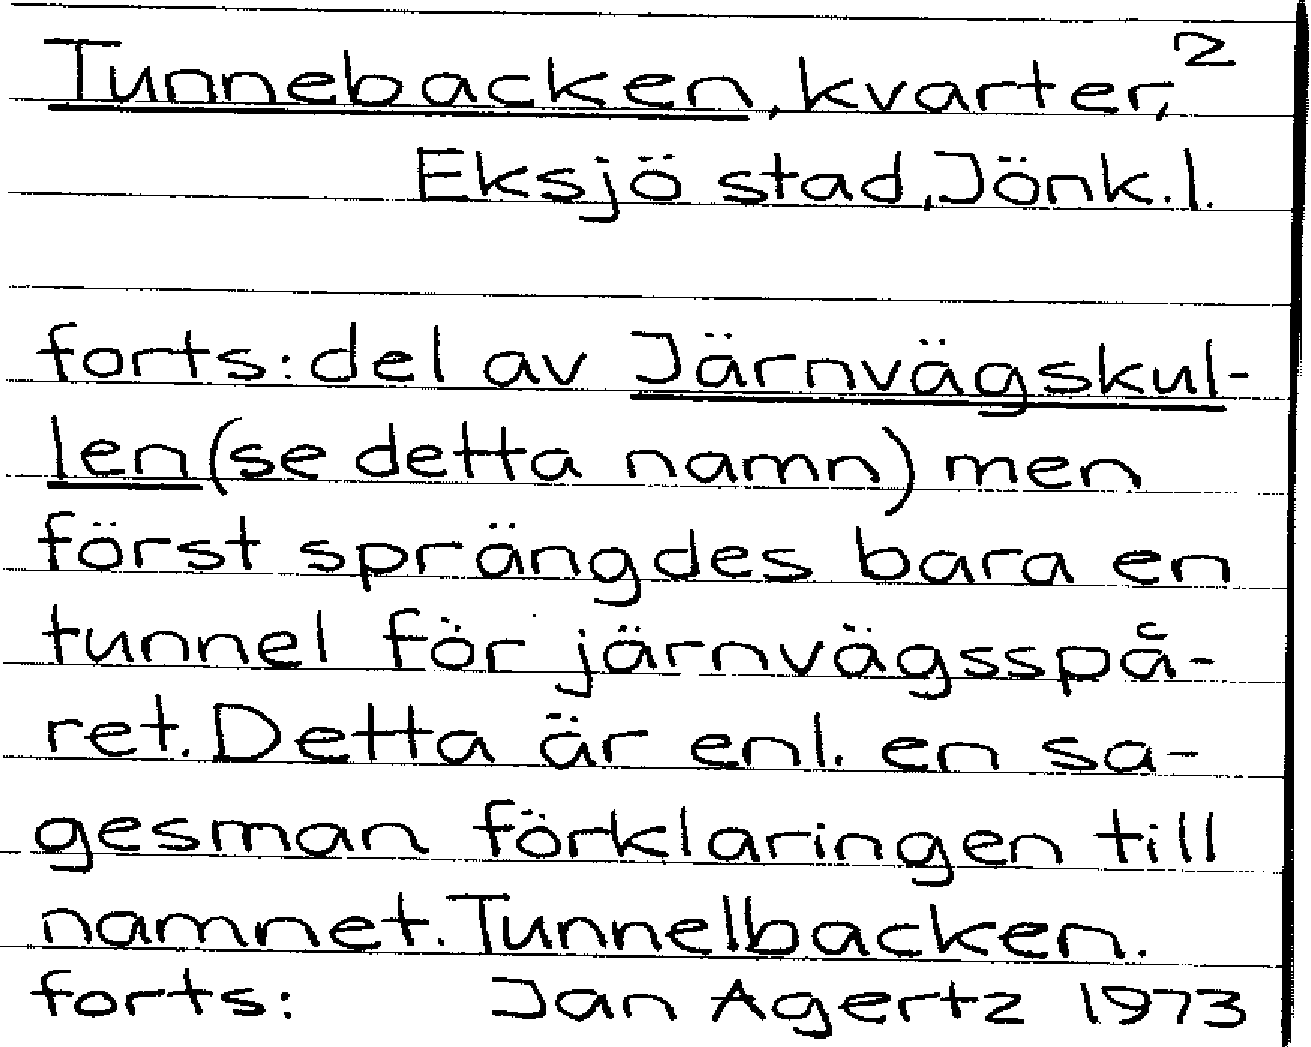 Tunnebacken, kvarter, 2
Eksjö stad, Jönk.l.
forts: del av Järnvägskul-
len (se detta namn) men
först sprängdes bara en
tunnel för järnvägsspå-
ret. Detta är enl. en sa-
gesman förklaringen till
namnet. Tunnelbacken.
forts: Jan Agertz 1973